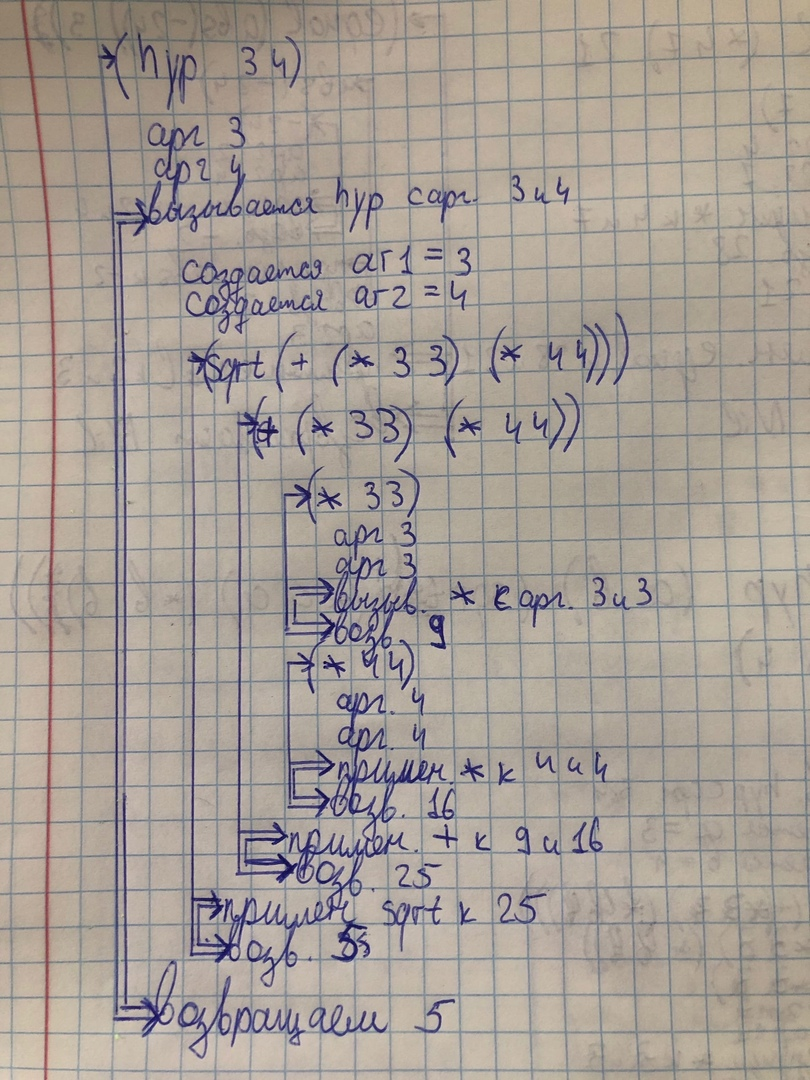 (hyp 3 4)
арг 3
арг 4
вызывается hyp с арг. 3 и 4
создается аг1 = 3
создается аг2 = 4
(sqrt (+ (* 3 3) (* 4 4)))
(+ (* 3 3) (* 4 4))
(* 3 3)
арг 3
арг 3
вызыв. * с арг. 3 и 3
возв. 9
(* 4 4)
арг. 4
арг. 4
примен. * к 4 и 4
возв. 16
примен. + к 9 и 16
возв. 25
примен. sqrt к 25
возв. 5
возвращаем 5